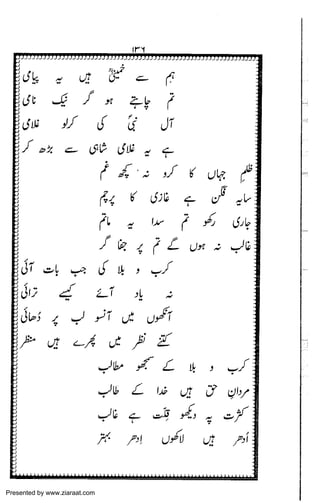 ۱۳۶
ہم سے خمینیؒ ہیں یہ پیامی
تم چاہتے ہو گر نیک نامی
آل نبیؐ کی کرلو غلامی
ہے یہ غلامی شاہی سے بڑھ کر
ظلمِ جہاں کا کرو نہ کچھ غم
سایہ فگن ہے غازی کا پرچم
جاری رکھو تم سدا یہ ماتم
غالب نہ ہوں گے تم پر جفا گر
کرب و بلا کی جب بات آئی
نہ یاد آئے کیسے ترائی
آنکھوں میں آنسو لب پر دُھائی
کتنے نظر میں پھرے ہیں منظر
کرب و بلا کے سمجھو مطالب
مردانِ حق ہیں خدا کے طالب
کثرت پہ دیکھو قلّت ہے غالب
اُدھر ہیں لاکھوں اِدھر بہتر
Presented by www.ziaraat.com